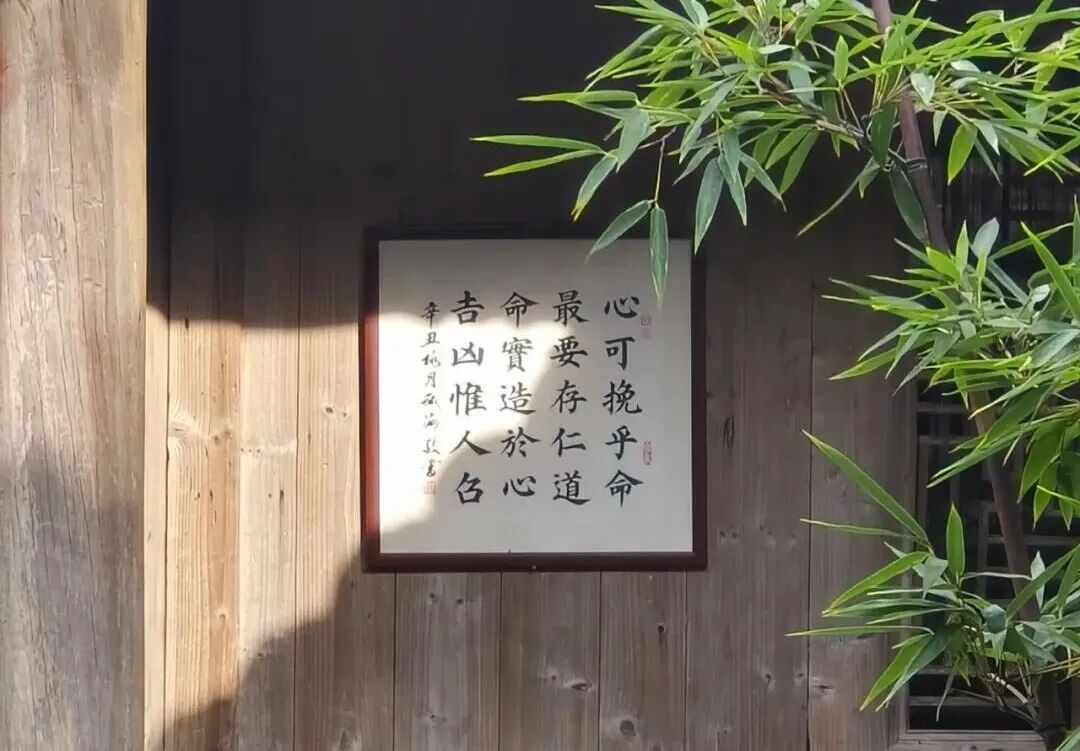 心可挽乎命
最要存仁道
命實造於心
吉凶惟人召
辛丑 月 敬書